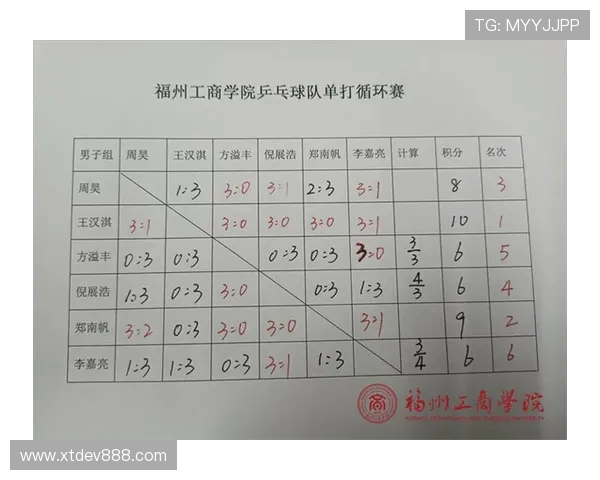 TG: MYYJJPP
福州工商学院乒乓球队单打循环赛
男子组 周昊 王汉淇 方溢丰 倪展浩 郑南帆 李嘉亮 计算 积分 名次
周昊 1:3 3:0 3:1 2:3 3:1 8 3
王汉淇 3:1 3:0 3:0 3:0 3:1 10 1
方溢丰 0:3 0:3 0:3 0:3 3:0 3/3 6 5
倪展浩 1:3 0:3 3:0 0:3 1:3 4/3 6 4
郑南帆 3:2 0:3 3:0 3:0 3:1 9 2
李嘉亮 1:3 1:3 0:3 3:1 1:3 3/4 6 6
福州工商學院
www.xtdev888.com